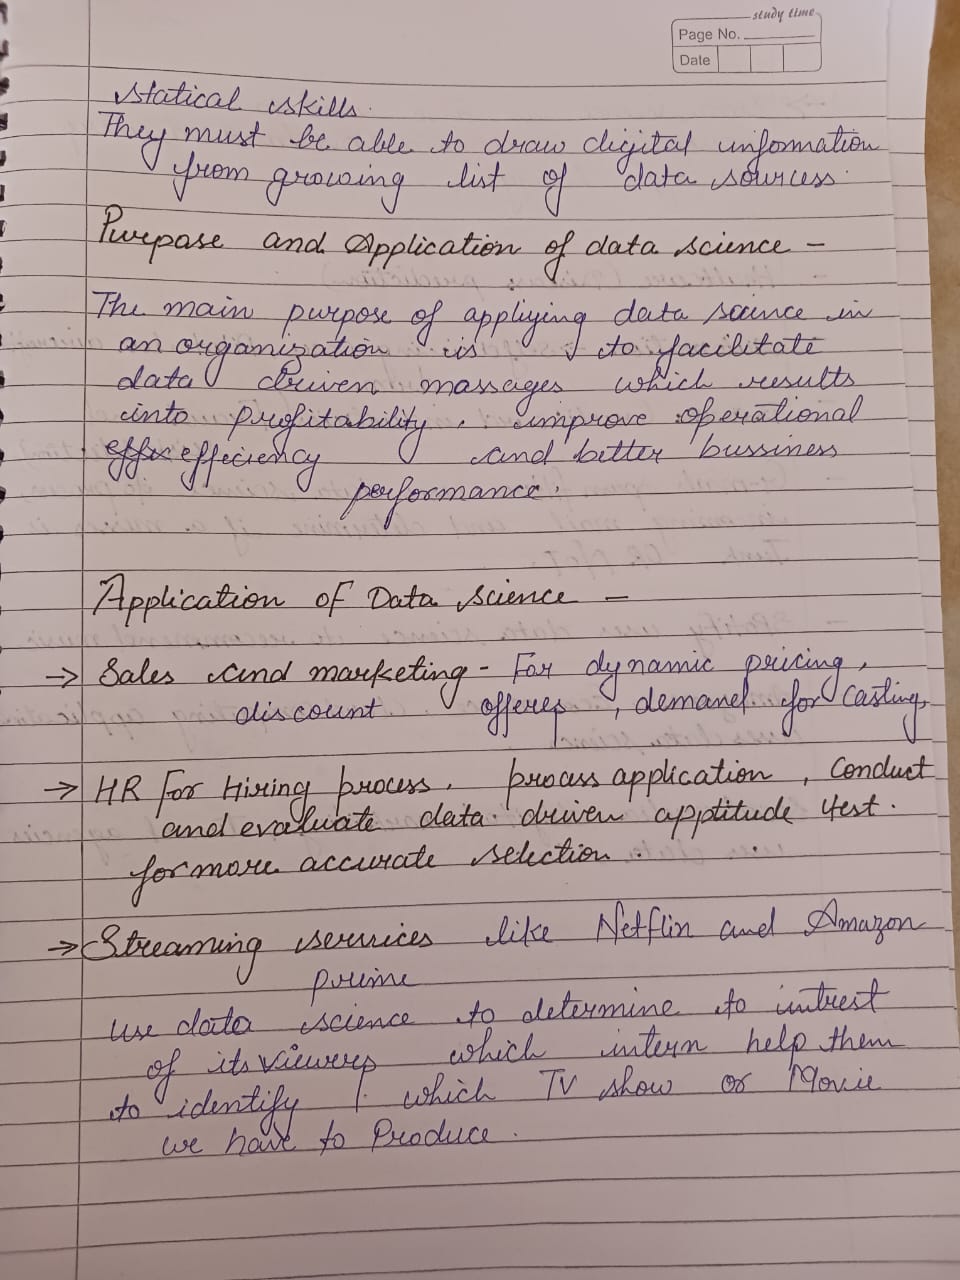 study time
Page No.
Date
statical skills.
They must be able to draw digital information
from growing list of data sources.
Purpase and Application of data science -
The main purpose of appliying data science in
an organization is to facilitate
data driven massages which results
into profitability, improve operational
effeciency and better bussiness
performance.
Application of Data science -
→ Sales and marketing - For dynamic pricing,
discount offeres, demand for casting,
→ HR For Hiring process, process application, conduct
and evaluate data driven apptitude test.
for more accurate selection.
→ Streaming services like Netflin and Amazon
prime
use data science to determine to intrest
of its viewers which intern help them
to identify which TV show or Movie
we have to Produce.